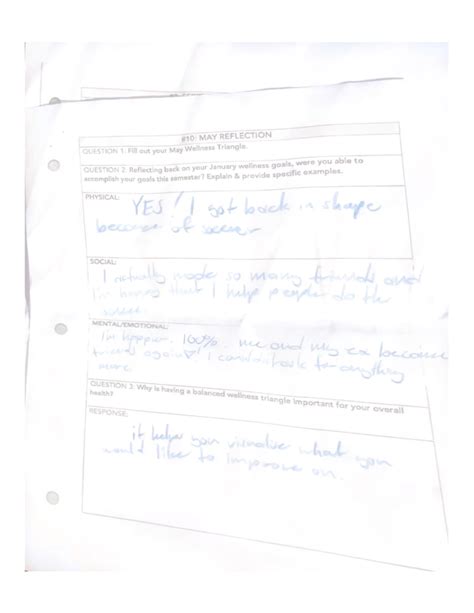 #10: MAY REFLECTION
QUESTION 1. Fill out your May Wellness Triangle.
QUESTION 2. Reflecting back on your January wellness goals, were you able to
accomplish your goals this semester? Explain & provide specific examples.
PHYSICAL:
YES! I got back in shape
because of soccer
SOCIAL:
I actually made so many friends and
I'm happy that I help people do the
same
MENTAL/EMOTIONAL:
I'm happier 100%. me and my ex became
friends again! I couldn't ask for anything
more
QUESTION 3. Why is having a balanced wellness triangle important for your overall
health?
RESPONSE:
it helps you visualise what you
would like to improve on.